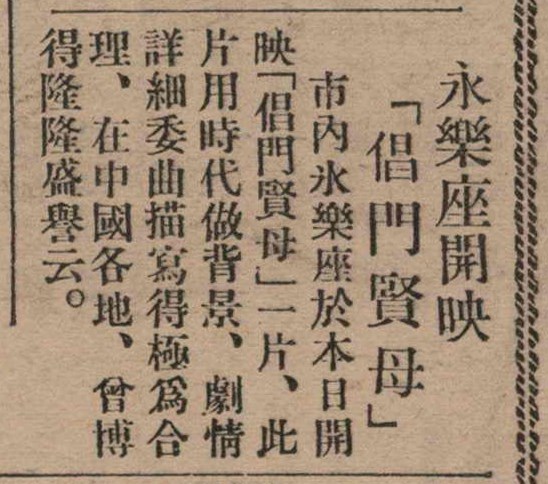 永樂座開映
「倡門賢母」
市內永樂座於本日開
映「倡門賢母」一片、此
片用時代做背景、劇情
詳細委曲描寫得極爲合
理、在中國各地、曾博
得隆隆盛譽云。